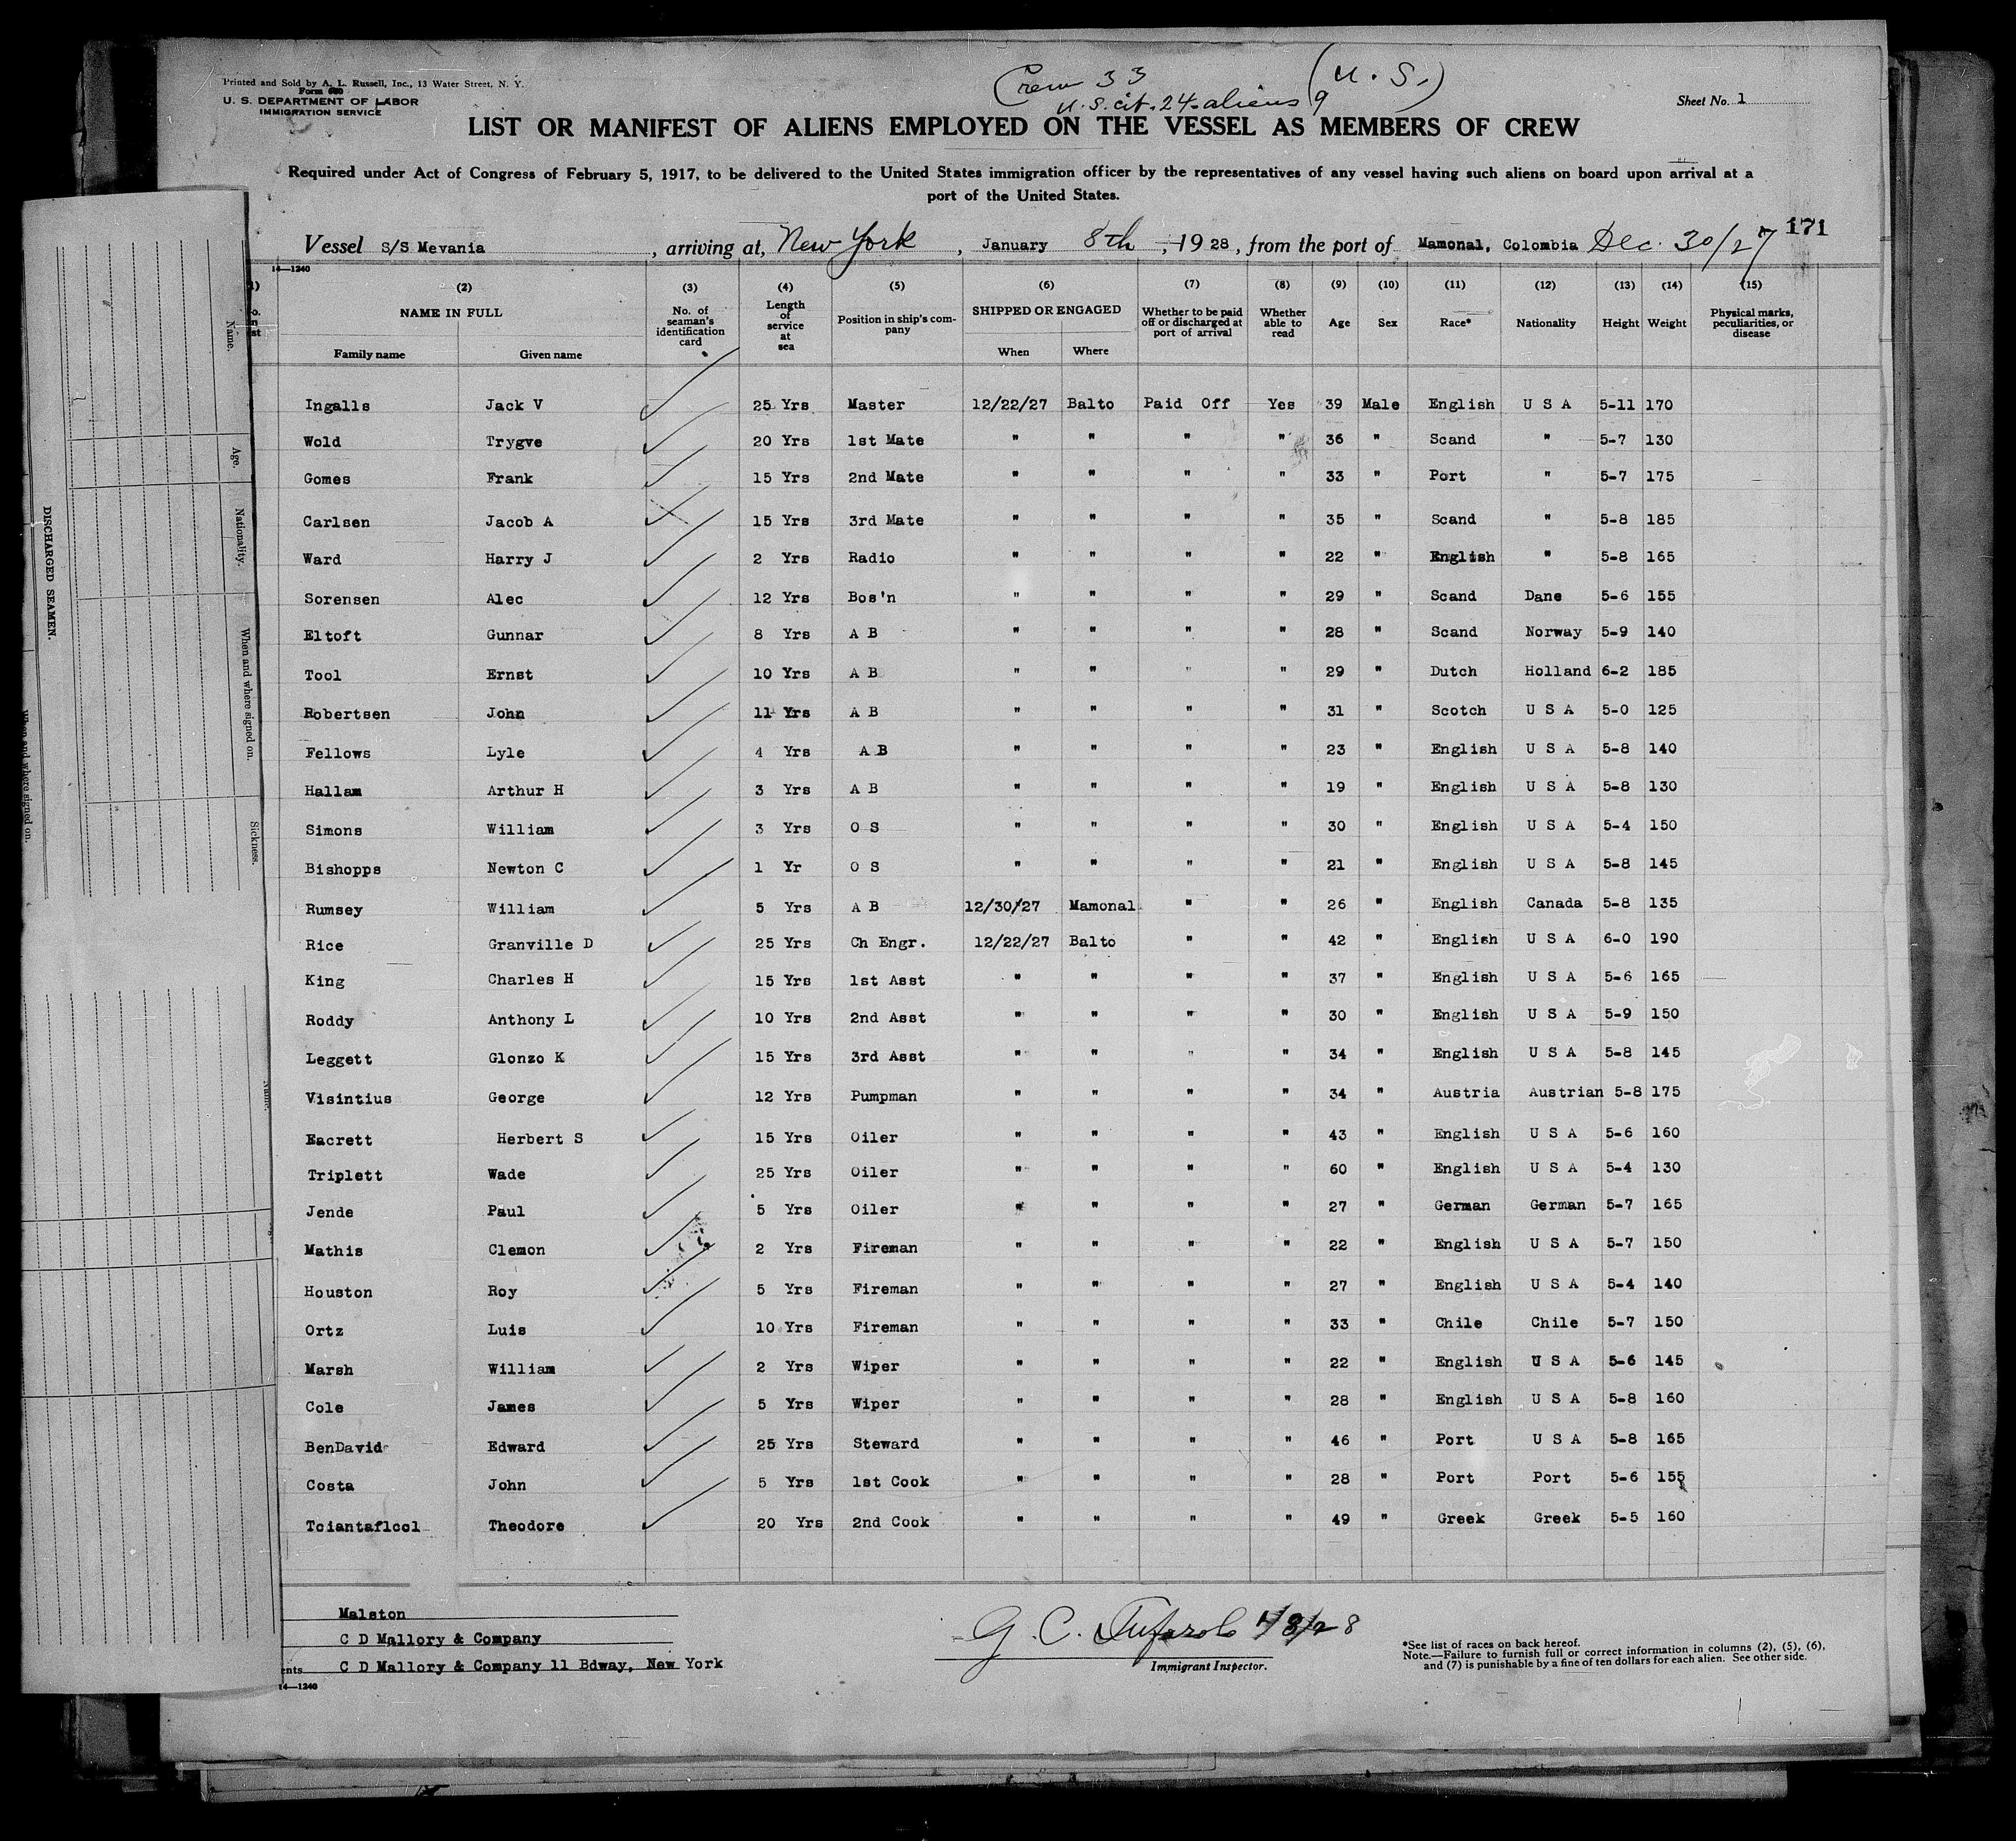 Printed and Sold by A. L. Russell, Inc., 13 Water Street, N. Y.
U. S. DEPARTMENT OF LABOR
IMMIGRATION SERVICE
Crew 33 (U. S.)
U.S. cit. 24 - aliens 9
Sheet No. 1
LIST OR MANIFEST OF ALIENS EMPLOYED ON THE VESSEL AS MEMBERS OF CREW
Required under Act of Congress of February 5, 1917, to be delivered to the United States immigration officer by the representatives of any vessel having such aliens on board upon arrival at a
port of the United States.
171
Vessel S/S Mevania, arriving at, New York, January 8th, 1928, from the port of Mamonal, Colombia Dec. 30/27
14—1240
(2) (3) (4) (5) (6) (7) (8) (9) (10) (11) (12) (13) (14) (15)
NAME IN FULL
Family name Given name
No. of seaman's identification card
Length of service at sea
Position in ship's company
SHIPPED OR ENGAGED
When Where
Whether to be paid off or discharged at port of arrival
Whether able to read
Age
Sex
Race*
Nationality
Height
Weight
Physical marks, peculiarities, or disease
Ingalls Jack V 25 Yrs Master 12/22/27 Balto Paid Off Yes 39 Male English U S A 5-11 170
Wold Trygve 20 Yrs 1st Mate " " " " 36 " Scand " 5-7 130
Gomes Frank 15 Yrs 2nd Mate " " " " 33 " Port " 5-7 175
Carlsen Jacob A 15 Yrs 3rd Mate " " " " 35 " Scand " 5-8 185
Ward Harry J 2 Yrs Radio " " " " 22 " English " 5-8 165
Sorensen Alec 12 Yrs Bos'n " " " " 29 " Scand Dane 5-6 155
Eltoft Gunnar 8 Yrs A B " " " " 28 " Scand Norway 5-9 140
Tool Ernst 10 Yrs A B " " " " 29 " Dutch Holland 6-2 185
Robertsen John 11 Yrs A B " " " " 31 " Scotch U S A 5-0 125
Fellows Lyle 4 Yrs A B " " " " 23 " English U S A 5-8 140
Hallam Arthur H 3 Yrs A B " " " " 19 " English U S A 5-8 130
Simons William 3 Yrs O S " " " " 30 " English U S A 5-4 150
Bishopps Newton C 1 Yr O S " " " " 21 " English U S A 5-8 145
Rumsey William 5 Yrs A B 12/30/27 Mamonal " " 26 " English Canada 5-8 135
Rice Granville D 25 Yrs Ch Engr. 12/22/27 Balto " " 42 " English U S A 6-0 190
King Charles H 15 Yrs 1st Asst " " " " 37 " English U S A 5-6 165
Roddy Anthony L 10 Yrs 2nd Asst " " " " 30 " English U S A 5-9 150
Leggett Glonzo K 15 Yrs 3rd Asst " " " " 34 " English U S A 5-8 145
Visintius George 12 Yrs Pumpman " " " " 34 " Austria Austrian 5-8 175
Eacrett Herbert S 15 Yrs Oiler " " " " 43 " English U S A 5-6 160
Triplett Wade 25 Yrs Oiler " " " " 60 " English U S A 5-4 130
Jende Paul 5 Yrs Oiler " " " " 27 " German German 5-7 165
Mathis Clemon 2 Yrs Fireman " " " " 22 " English U S A 5-7 150
Houston Roy 5 Yrs Fireman " " " " 27 " English U S A 5-4 140
Ortz Luis 10 Yrs Fireman " " " " 33 " Chile Chile 5-7 150
Marsh William 2 Yrs Wiper " " " " 22 " English U S A 5-6 145
Cole James 5 Yrs Wiper " " " " 28 " English U S A 5-8 160
BenDavid Edward 25 Yrs Steward " " " " 46 " Port U S A 5-8 165
Costa John 5 Yrs 1st Cook " " " " 28 " Port Port 5-6 155
Tciantaflcol Theodore 20 Yrs 2nd Cook " " " " 49 " Greek Greek 5-5 160
Malston
C D Mallory & Company
C D Mallory & Company 11 Bdway, New York
14—1240
G. C.
Immigrant Inspector.
*See list of races on back hereof.
Note.—Failure to furnish full or correct information in columns (2), (5), (6),
and (7) is punishable by a fine of ten dollars for each alien. See other side.
DISCHARGED SEAMEN.
Name.
Age.
Nationality.
When and where signed on.
Sickness.
When and where signed on.